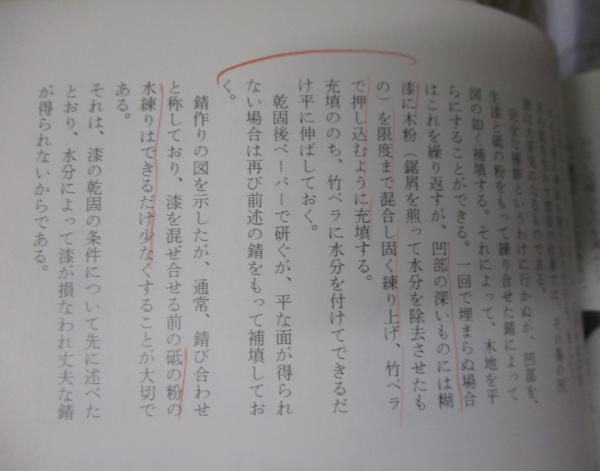 完全な補修というわけに行かぬが、凹部を、
生漆と砥の粉をもって練り合せた錆によって
図の如く補填する。それによって、木地を平
らにすることができる。一回で埋まらぬ場合
はこれを繰り返すが、凹部の深いものには糊
漆に木粉（鋸屑を煎って水分を除去させたも
の）を限度まで混合し固く練り上げ、竹ベラ
で押し込むように充填する。
充填ののち、竹ベラに水分を付けてできるだ
け平に伸ばしておく。
乾固後ペーパーで研ぐが、平な面が得られ
ない場合は再び前述の錆をもって補填してお
く。
錆作りの図を示したが、通常、錆び合わせ
と称しており、漆を混ぜ合せる前の砥の粉の
水練りはできるだけ少なくすることが大切で
ある。
それは、漆の乾固の条件について先に述べた
とおり、水分によって漆が損なわれ丈夫な錆
が得られないからである。